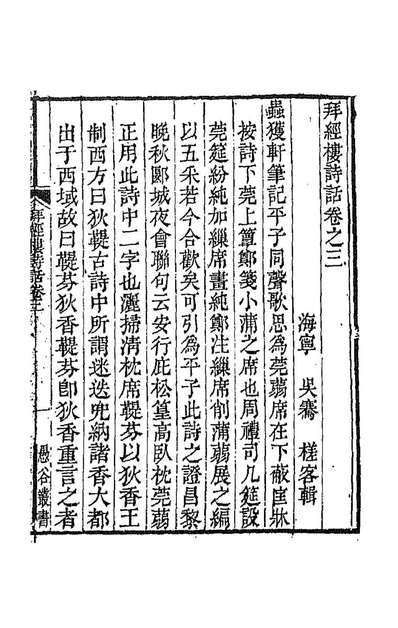 拜經樓詩話卷之三
海寧 吳騫 槎客輯
蟲獲軒筆記平子同聲歌思為莞蒻席在下蔽匡牀
按詩下莞上簟鄭箋小蒲之席也周禮司几筵設
莞筵紛純加繅席畫純鄭注繅席削蒲蒻展之編
以五采若今合歡矣可引為平子此詩之證昌黎
晚秋郾城夜會聯句云安行庇松篁高臥枕莞蒻
正用此詩中二字也灑掃清枕席鞮芬以狄香王
制西方曰狄鞮古詩中所謂迷迭兜納諸香大都
出于西域故曰鞮芬狄香鞮芬卽狄香重言之者
拜經樓詩話卷三
一
愚谷叢書